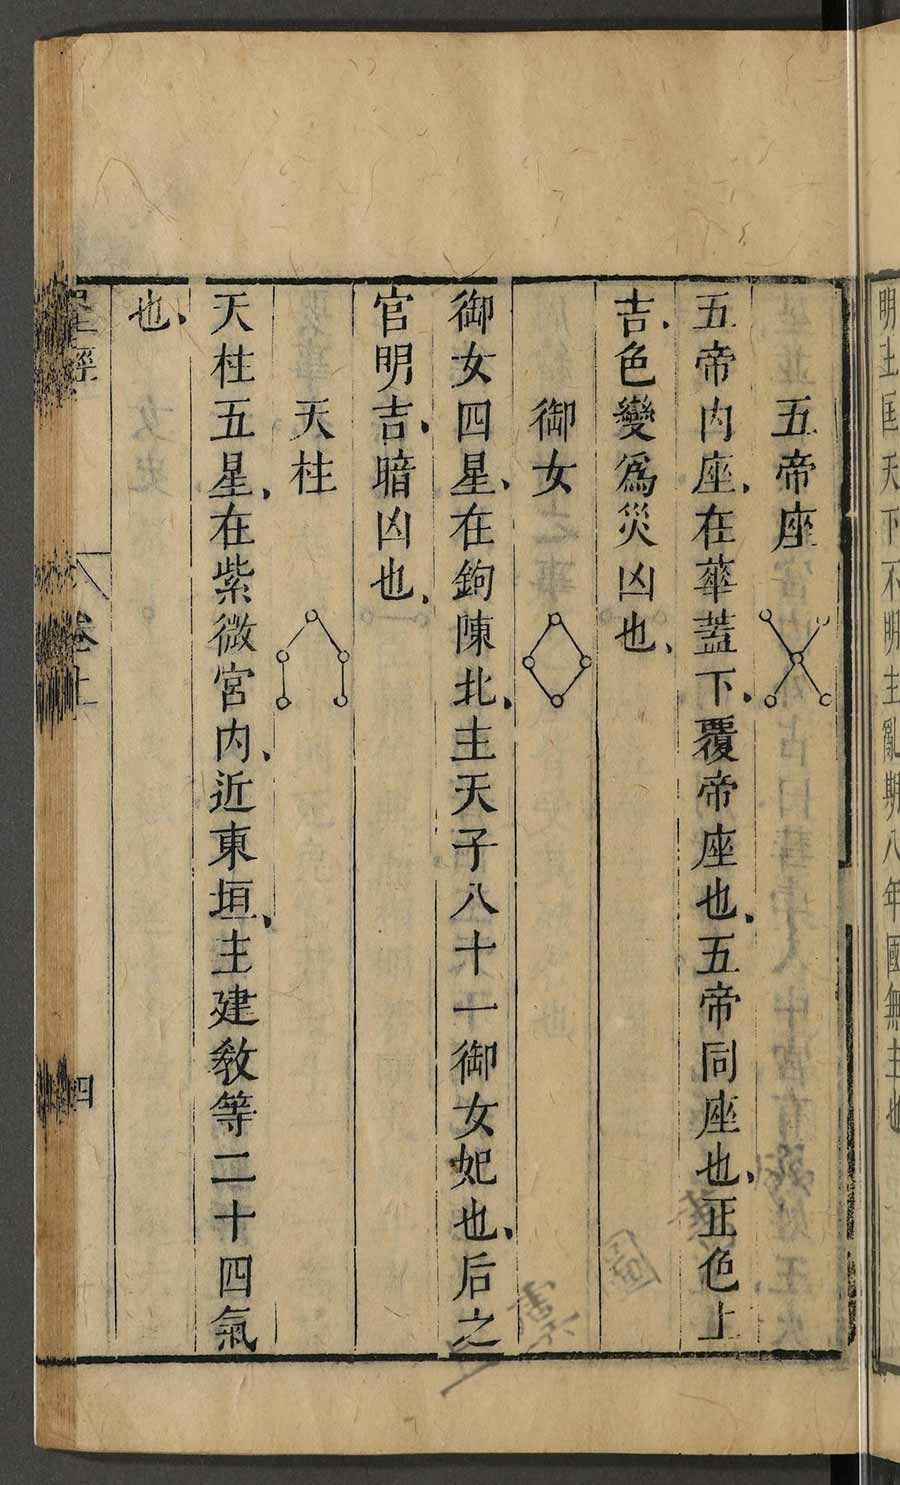 明主匡天下不明主亂期八年國無主也
五帝座
五帝内座、在華蓋下、覆帝座也、五帝同座也、正色上
吉、色變爲災凶也、
御女
御女四星、在鉤陳北、主天子八十一御女妃也、后之
官明吉、暗凶也、
天柱
天柱五星、在紫微宮内、近東垣、主建教等二十四氣
也、
星經
卷上
四